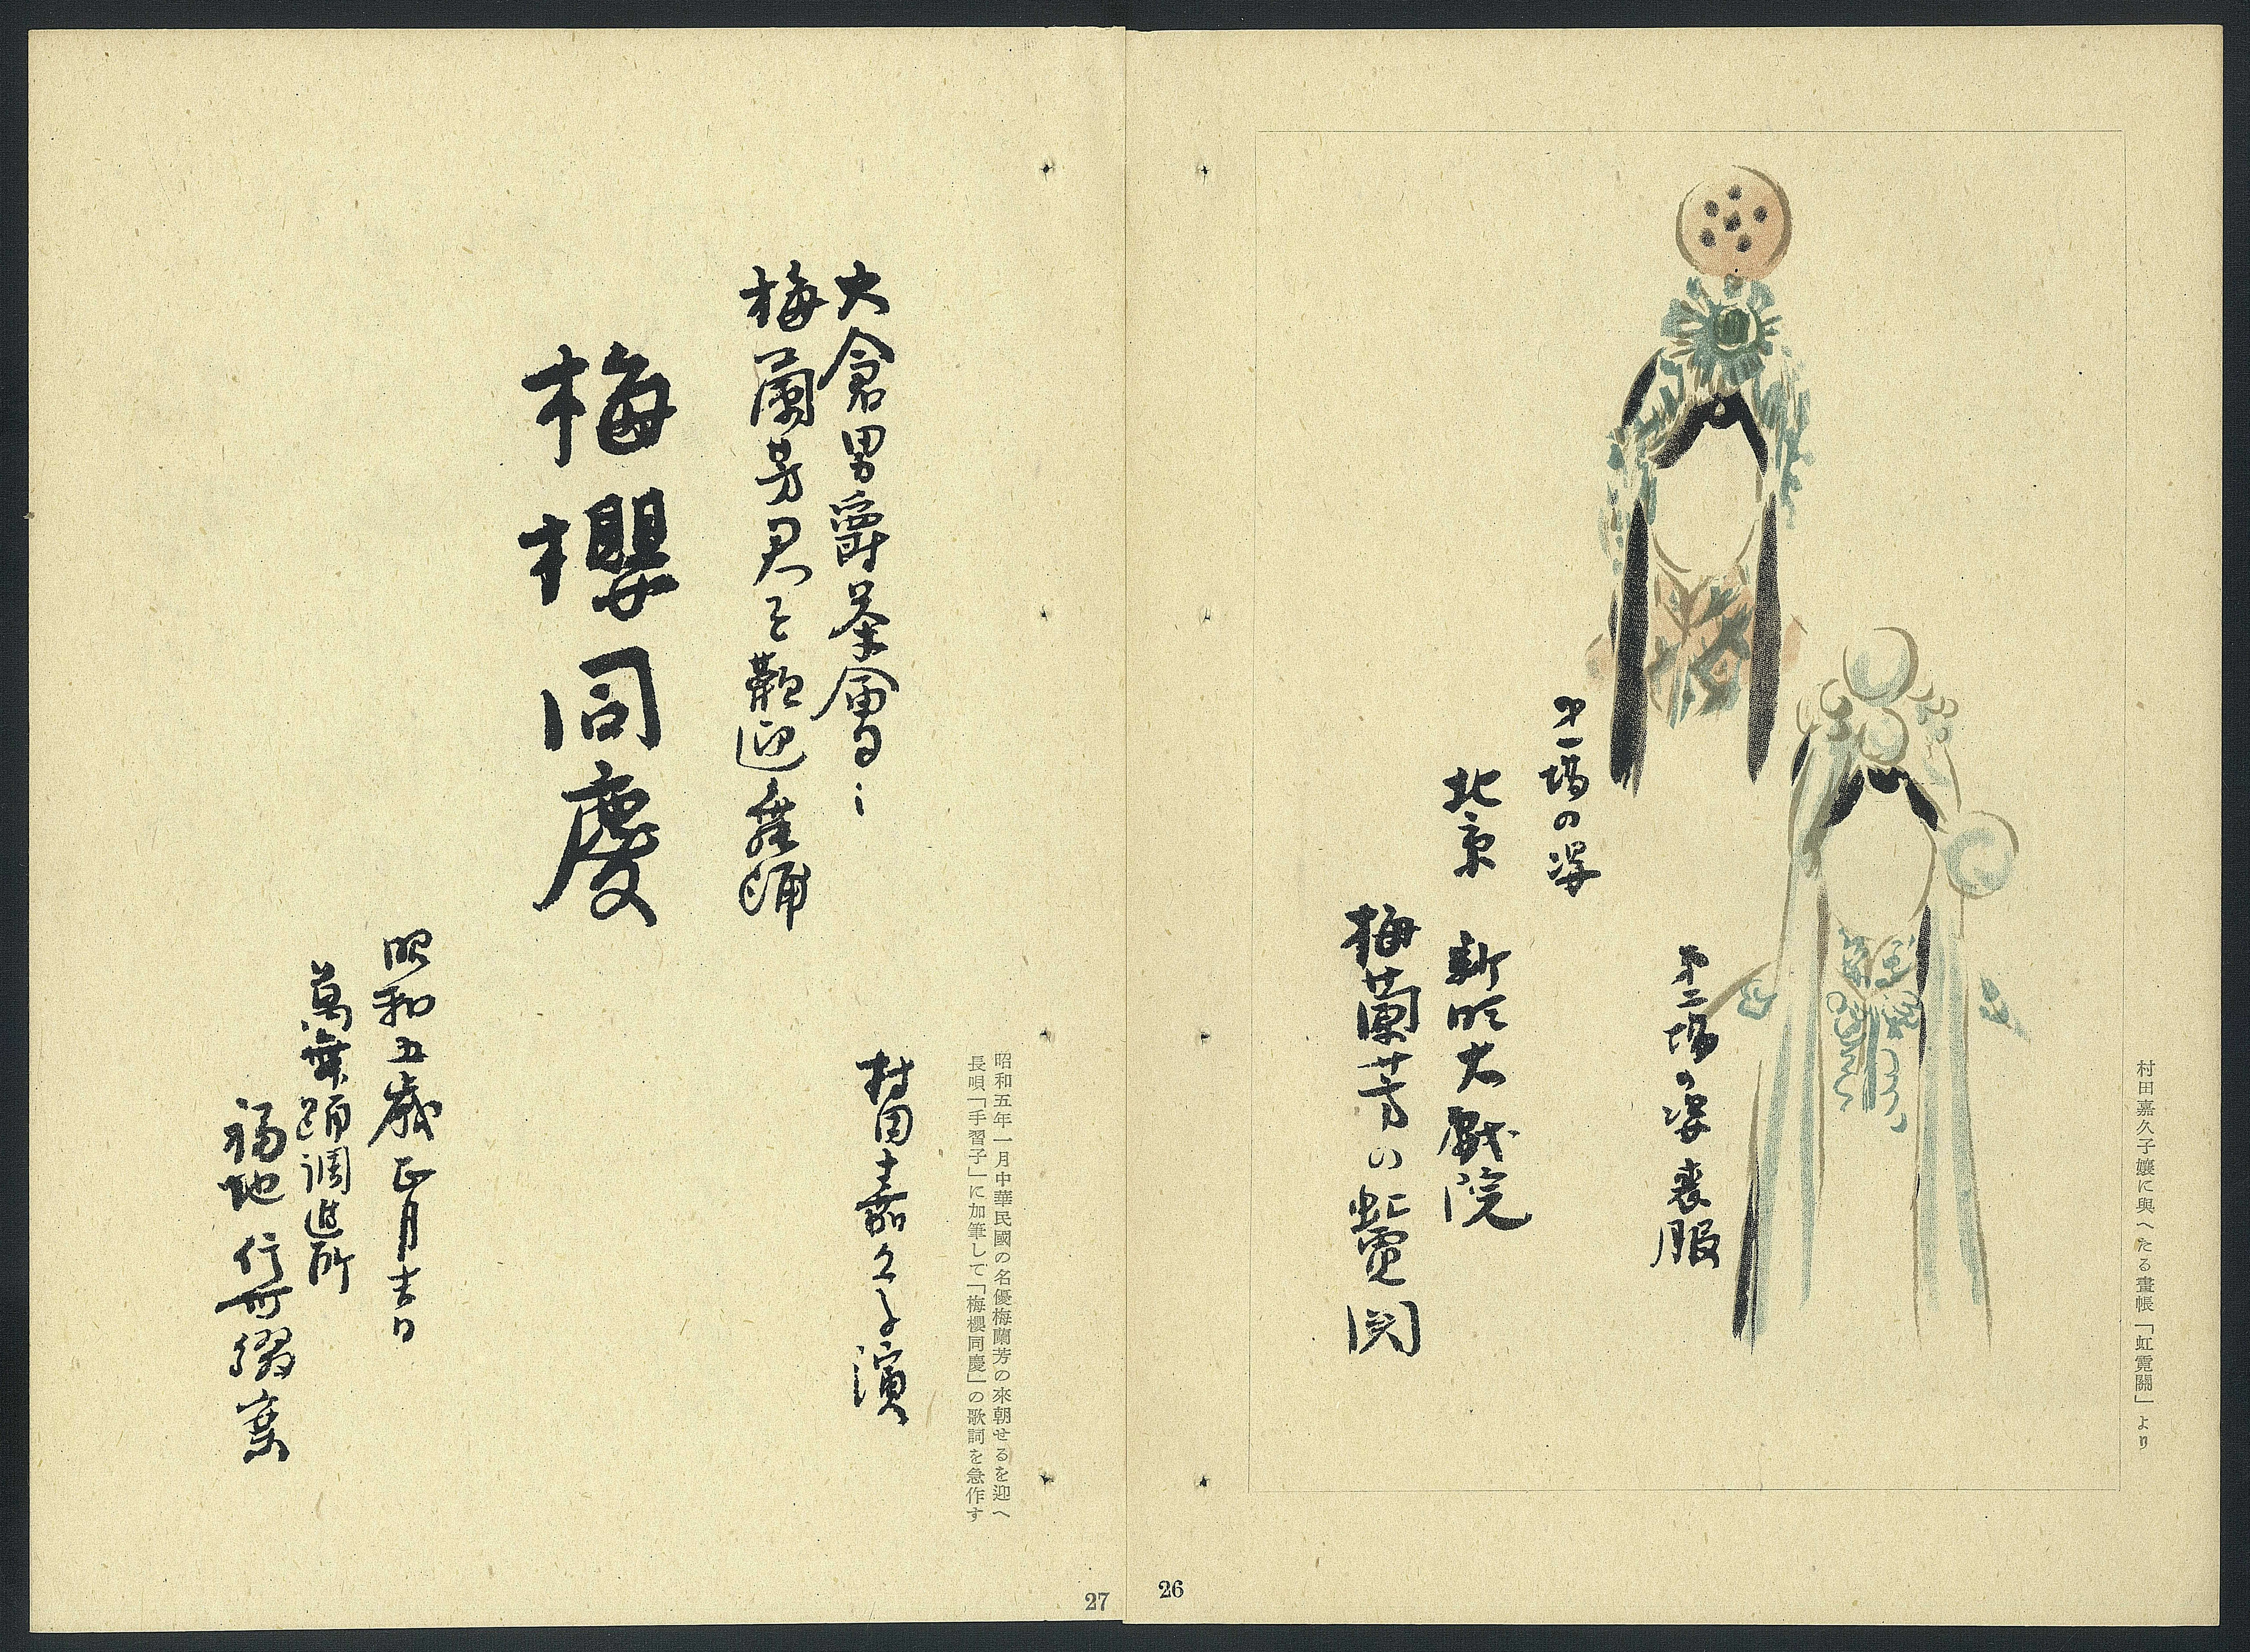 村田嘉久子孃に與へたる畫帳「虹霓關」より
第一場の姿
第二場の姿 喪服
北京 新明大戲院
梅蘭芳の虹霓関
26
昭和五年一月中華民國の名優梅蘭芳の來朝せるを迎へ
長唄「手習子」に加筆して「梅櫻同慶」の歌詞を急作す
大倉男爵茶會日ニ
梅蘭芳君を歡迎舞踊
村田嘉久子演
梅櫻同慶
昭和五歳正月吉日
萬舞踊調進所
福地信哥綴棄
27